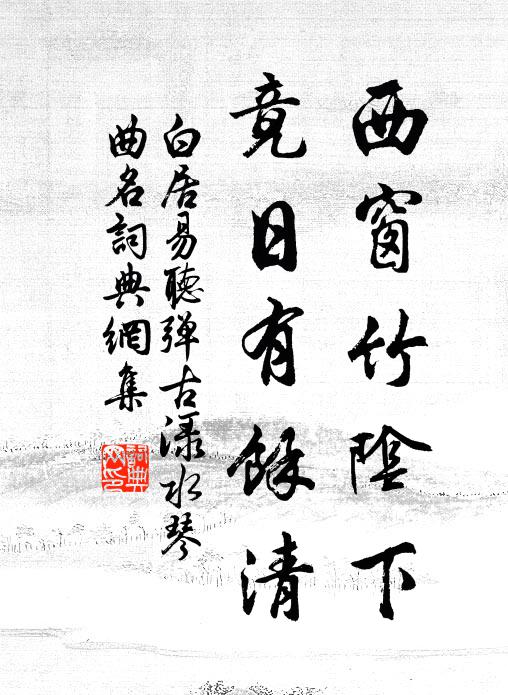 西窗竹陰下
竟日有餘清
白居易聽弹古渌水琴
曲名詞典網集
詞典
网印